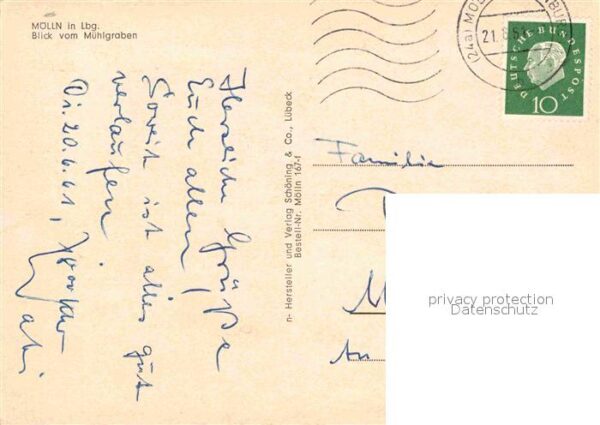 MÖLLN in Lbg.
Blick vom Mühlgraben
(24a) MÖ
21.8.5
DEUTSCHE BUNDESPOST
10
Herzliche Grüße
Euch allen,
Soweit ist alles gut
verlaufen
Di. 20.6.61,
n- Hersteller und Verlag Schöning & Co., Lübeck
Bestell-Nr. Mölln 167-f
Familie
M
An
privacy protection
Datenschutz